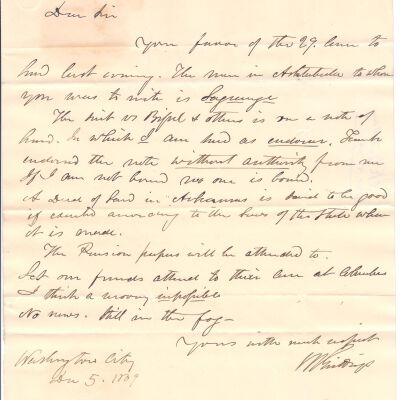 Dear Sir
Your favor of the 29. came to
hand last evening. The man in Ashtabula to whom
you was to write is Lagrange
The suit vs Bissel & others is on a note of
hand. In which I am sued as endorser.
endorsed the note without authority from me
If I am not bound no one is bound.
A Deed of Land in Arkansas is said to be good
if executed according to the Laws of the State where
it is made.
The Pension papers will be attended to.
Let our friends attend to their case at Columbus
I think a move
No news. Still in the fog—
Yours with much respect
Washington City
5. 1839